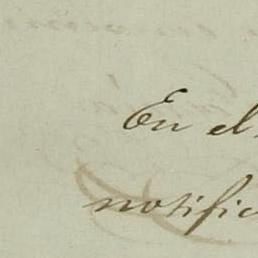 En el
notific